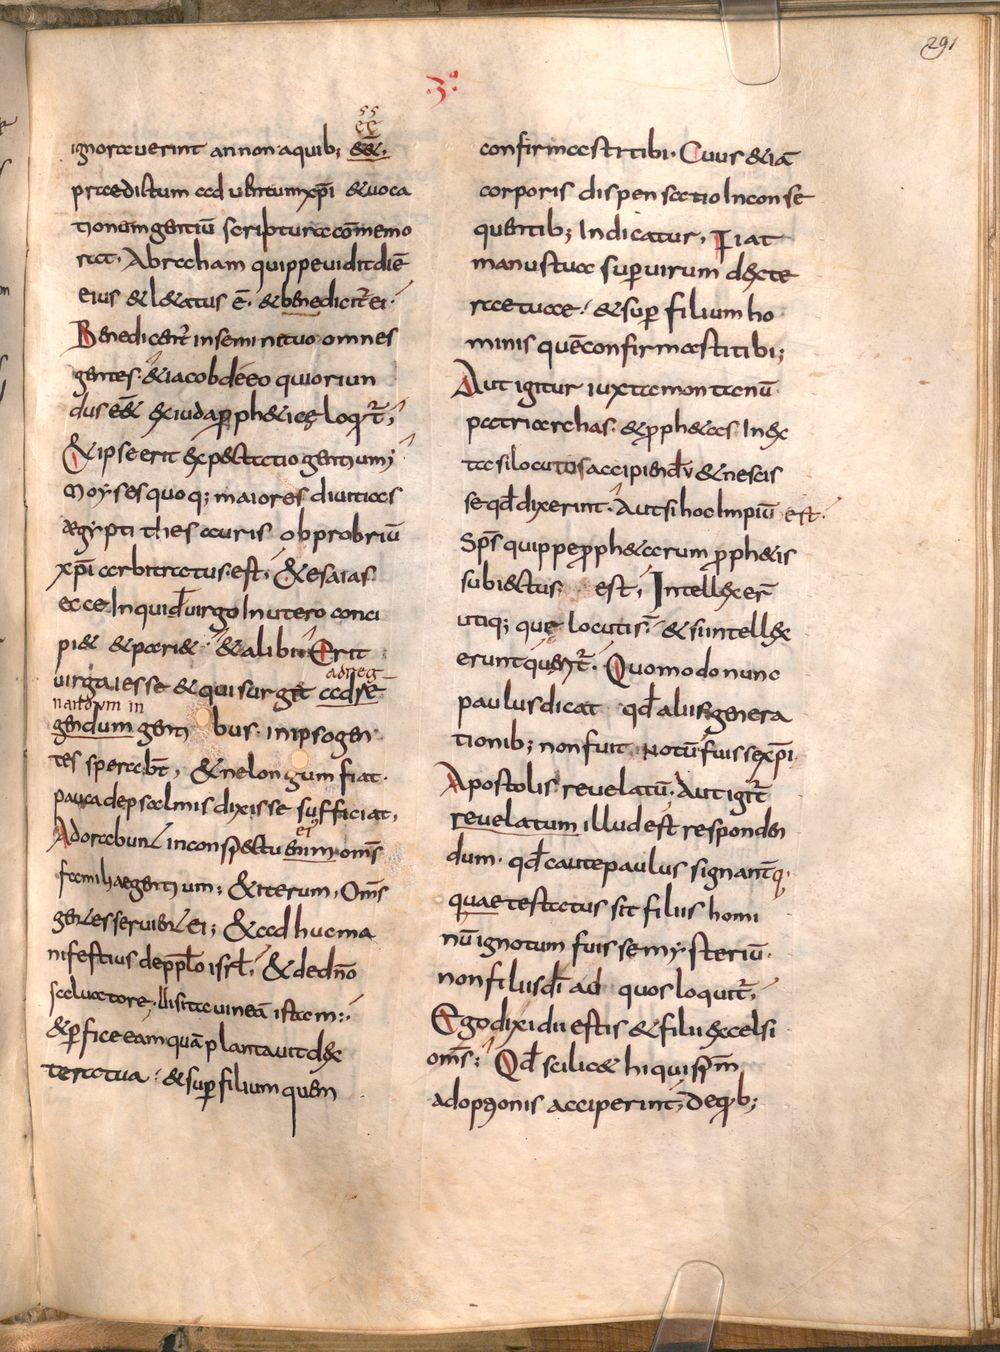 291
.3.º
ignorauerint an non a quib; &&.
praedictum ad uentum xp̄i & uoca
tionem gentiū scriptura cōmemo
rat. Abraham quippe uidit diē
eius & l&atus ē. & benedicit̄ ei.
Benedicent̄ in semine tuo omnes
gentes. & iacob de eo qui oriun
dus e&̄ ex iuda p ph&ice loqt̄;
& ipse erit expectatio gentium;
Moyses quoq; maiores diuitias
aegypti thesauris obprobriū
xp̄i arbitratus est, & esaias
ecce Inquid uirgo In utero conci
pi& & pari& & alibi Erit
uirga iesse & qui surg&
adreg
nandum in
gendum genti bus. in ipso gen
tes sperabt̄, & ne longum fiat.
pauca de psalmis dixisse sufficiat,
ei
Adorabunt in conspectu enim om̄s
familiae gentium; & iterum, Om̄s
gentes seruient ei; & ad huc ma
nifestius de pplo isrl, & de dn̄o
saluatore, Uisita uineā istam;
& pfice eam quā plantauit dex
tera tua; & sup filium quem
confirmasti tibi. Cuius & iā
corporis dispensatio Inconse
quentib; Indicatur. Fiat
manus tua sup uirum dexte
rae tuae; & sup filium ho
minis quē confirmasti tibi;
Aut igitur iuxta montanū
patriarchas & pph&as In ex
tasi locutos accipiend & nescis
se qd dixerint. Aut si hoc Impiū est.
Sp̄s quippe pph&arum pph&is
subiectus est, Intellexer̄
utiq; que locuti s̄. & si intellex
erunt Quomodo nunc
paulus dicat qd aliis genera
tionib; non fuit notū fuisse xp̄i
Apostolis reuelatū. Aut igit̄
reuelatum illud est responden
dum. qd caute paulus signant̄q
quae testatus sit filiis homi
nū ignotum fuisse mysteriū.
non filiis di ad quos loquit̄,
Ego dixi dii estis & filii excelsi
om̄s; Qd scilic& hi qui sp̄m
adoptionis acciperint, de qb;